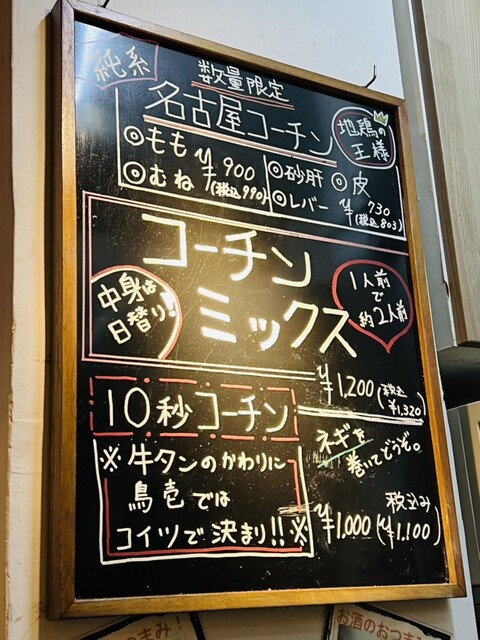 純系
数量限定
名古屋コーチン
地鶏の
王様
◎もも
◎むね
¥900
(税込990)
◎砂肝 ◎皮
◎レバー
¥730
(税込803)
コーチン
ミックス
中身は
日替り!
1人前
で
約2人前
¥1,200(税込
¥1,320)
10秒コーチン
ネギを
巻いてどうぞ。
※牛タンのかわりに
鳥壱では
コイツで決まり!!※
税込み
¥1,000(¥1,100)
お酒のおつま
つまみ!